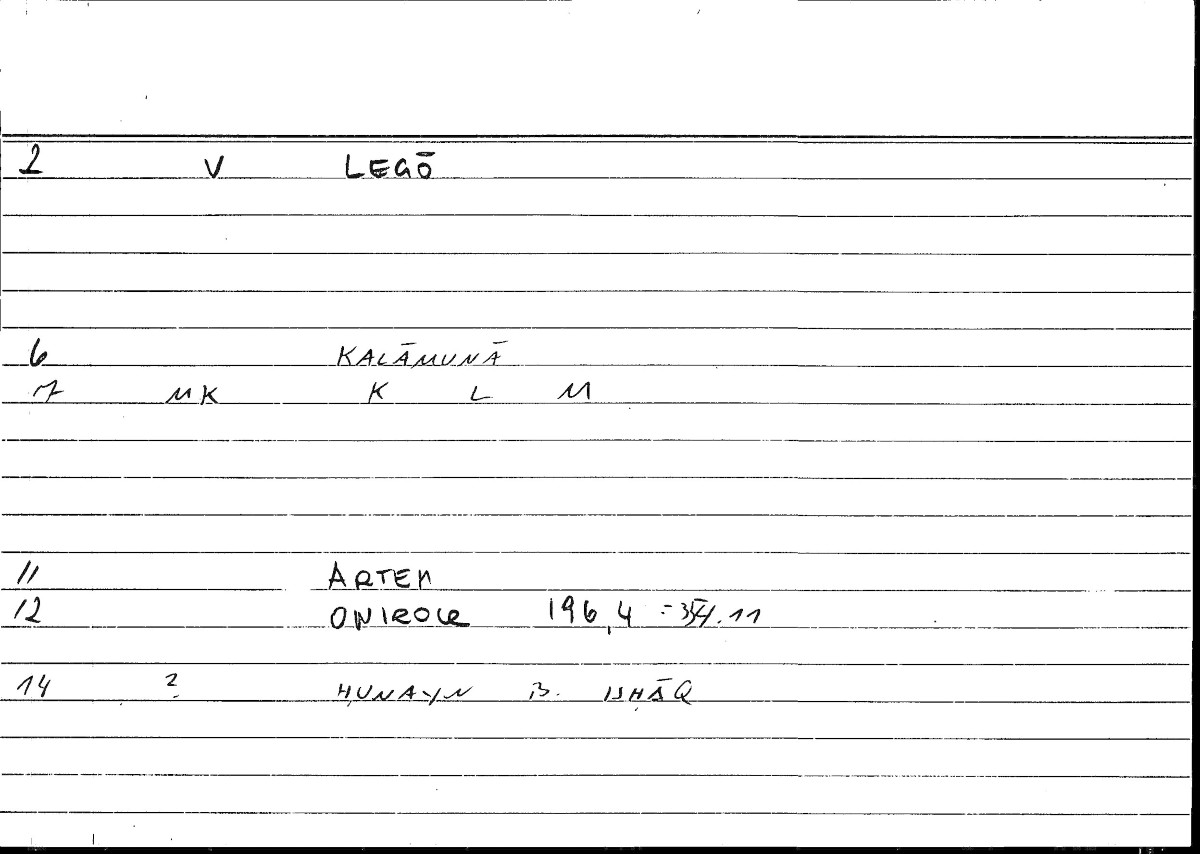 2 V LEGŌ
6 KALĀMUNĀ
7 MK K L M
11 ARTEM
12 ONIROCR 196,4 = 354.11
14 2 ḤUNAYN B. ISḤĀQ